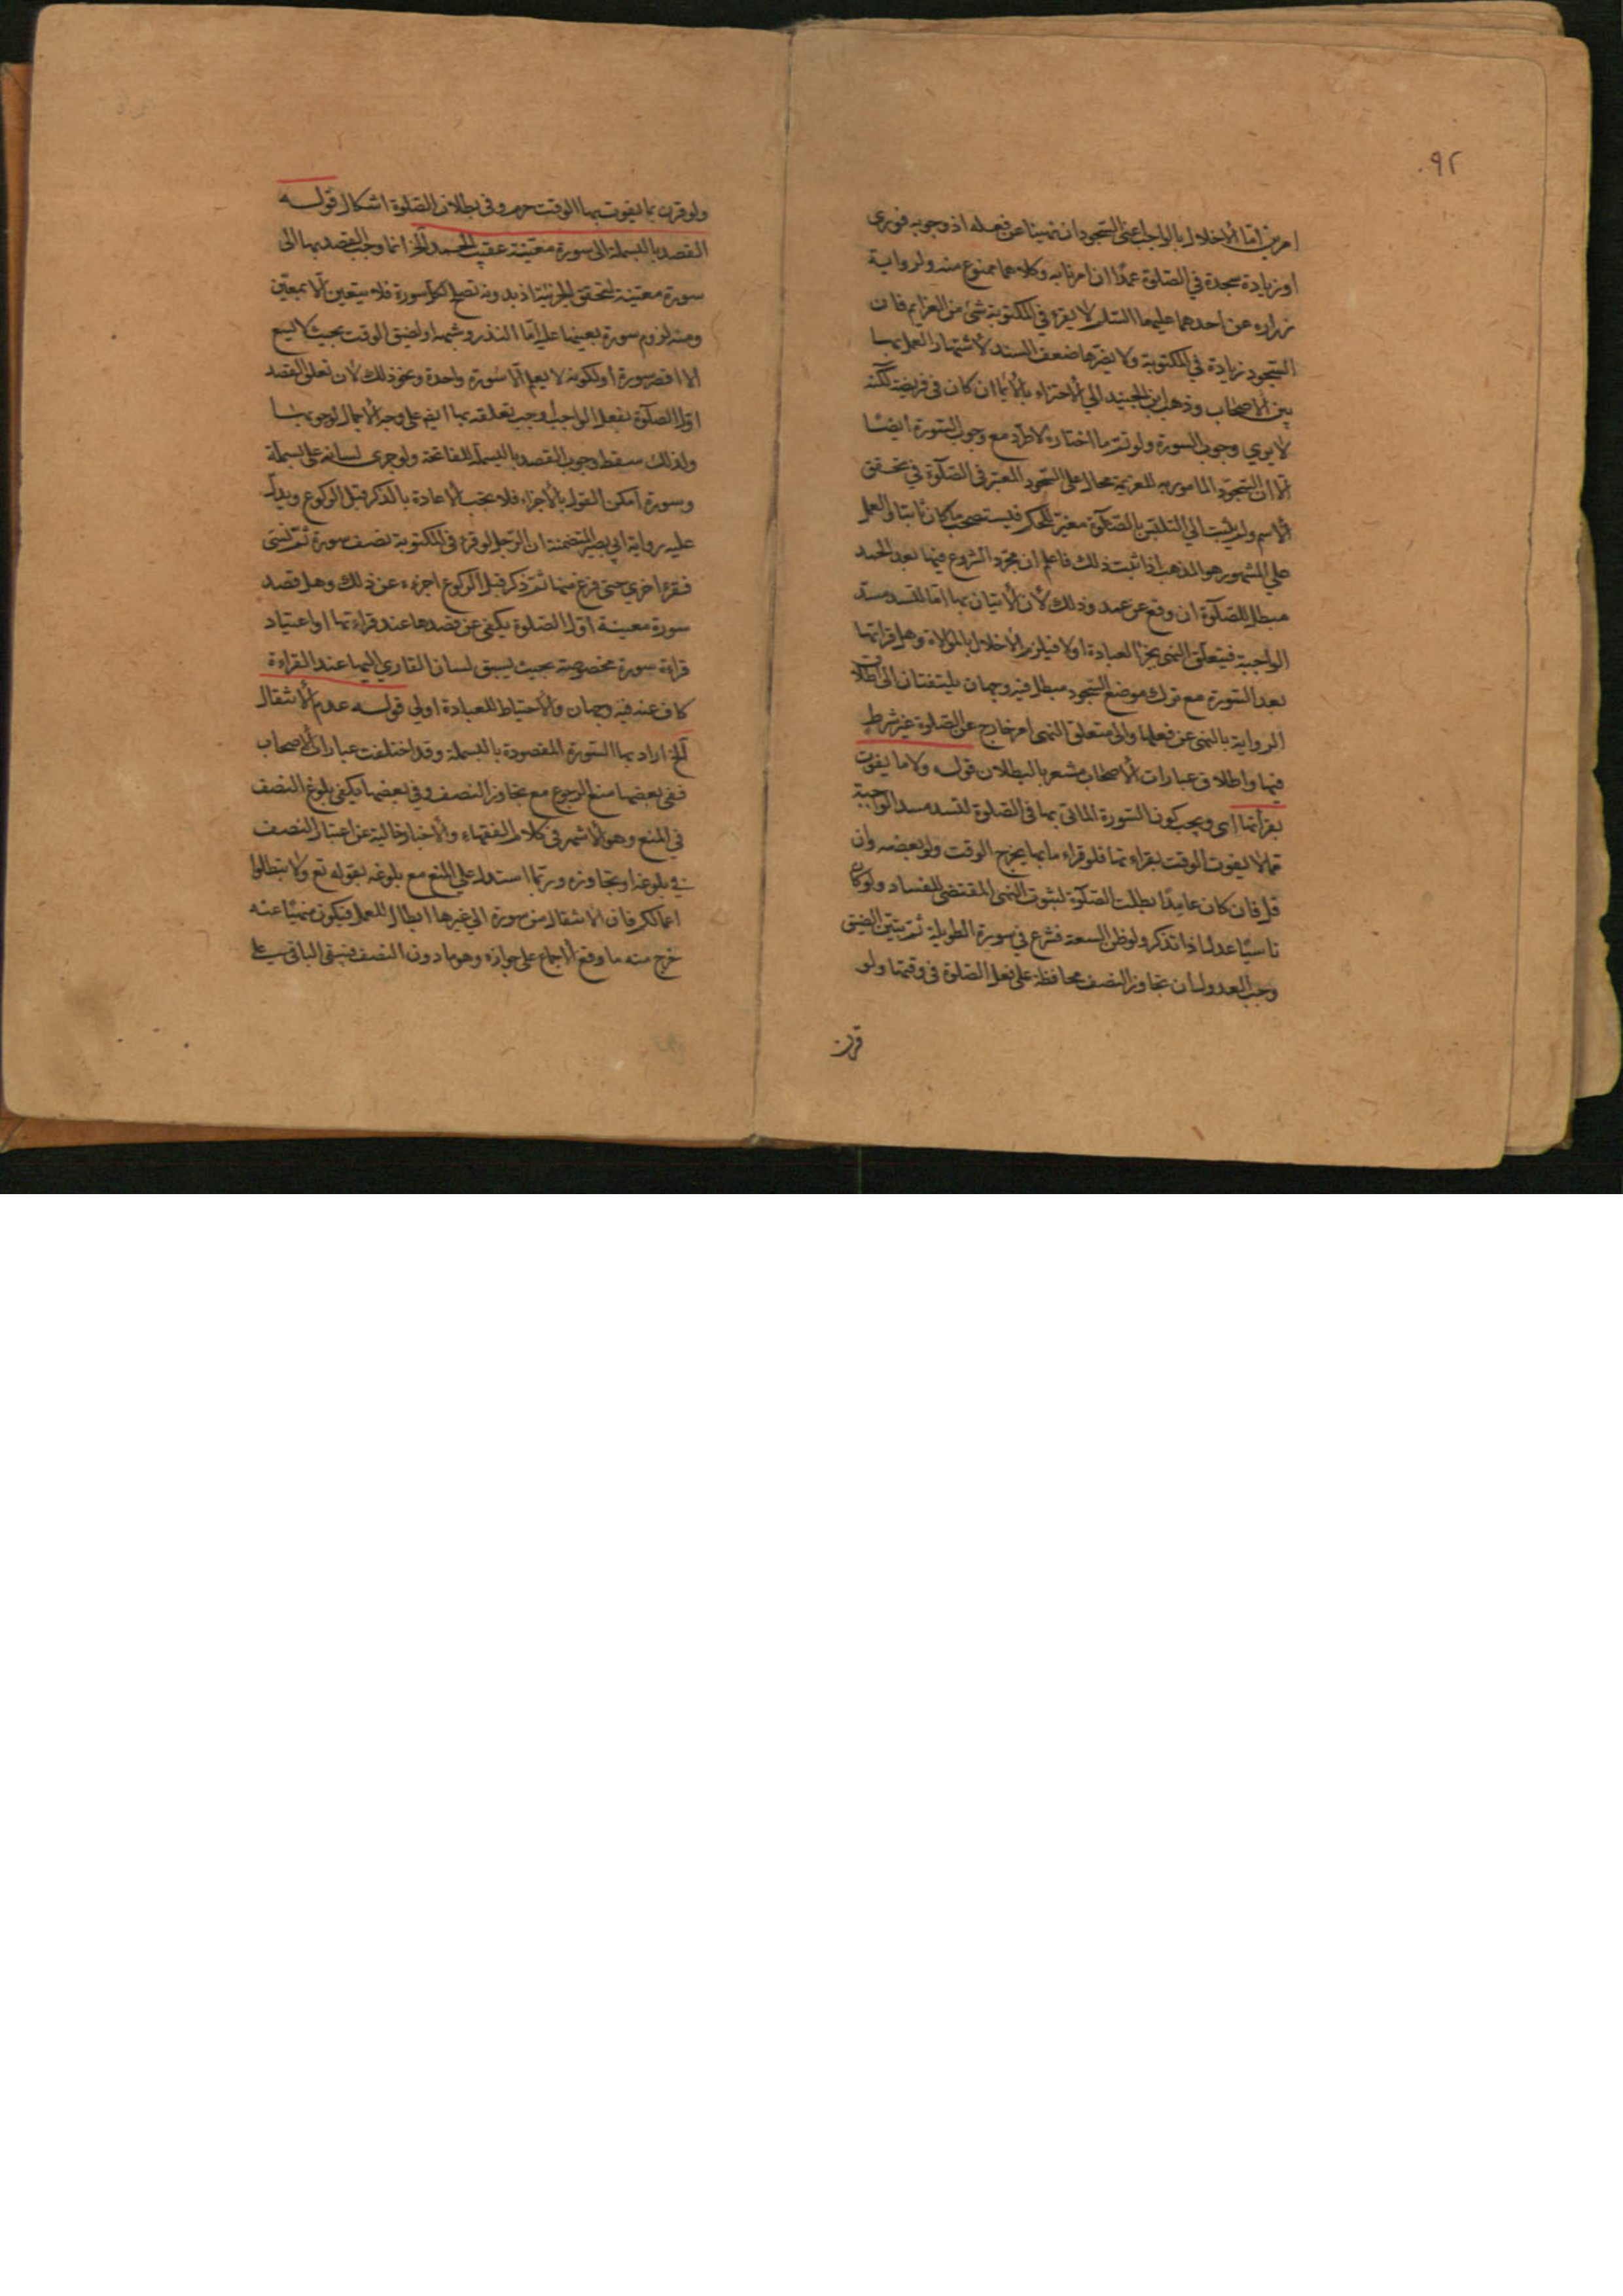 ٩٢
امرين اما الأخلال بالواجب اعنى السجود ان نهيناه عن فعله اذ وجوبه فورى
او زيادة سجدة في الصلوة عمدًا ان امرنا به وكلاهما ممنوع منه ولرواية
زراره عن احدهما عليهما السلم لا يقرء في المكتوبة شئ من العزايم فان
السجود زيادة في المكتوبة ولا يضرها ضعف السند لأشتهار العمل بها
بين الأصحاب وذهب ابن الجنيد الي الأجتزاء بالأيماء ان كان في فريضة لكنه
لا يوي وجوب السورة ولو تم ما اختاره لاطرد مع وجوب السورة ايضًا
الا ان السجود المامور به للعزيمة محال على السجود المعتبر في الصلوة في تحقق
الأسم ولم يثبت الي التلبس بالصلوة مغير للحكم فيستصحب ما كان ثابتا والعمل
علي المشهور هو المذهب اذا ثبت ذلك فاعلم ان مجرد الشروع فيها بعد الحمد
مبطل للصلوة ان وقع عن عمد وذلك لأن الأتيان بها اما لتسد مسد
الواجبة فيتعلق النهى بجزء العبادة اولا فيلزم الأخلال بالموالاة وهل قرائتها
بعد السورة مع ترك موضع السجود مبطل فيه وجهان يلتفتان الى اطلاق
الرواية بالنهى عن فعلها والى متعلق النهى امر خارج عن الصلوة غير شرط
فيها واطلاق عبارات الأصحاب مشعر بالبطلان قوله ولا ما يفوت
بقرائتها اى ويجب كون السورة الماتى بها في الصلوة لتسد مسد الواجبة
مما لا يفوت الوقت بقراءتها فلو قراء ما بها يخرج الوقت ولو بعضه وان
قل فان كان عامدًا بطلت الصلوة لثبوت النهى المقتضى للفساد ولو كان
ناسيًا عدل اذا تذكر ولو ظن السعة فشرع في سورة الطويلة ثم تبين الضيق
وجب العدول ان تجاوز النصف محافظة على فعل الصلوة فى وقتها ولو
قرن
ولو قرن بما يفوت بها الوقت حرم وفي بطلان الصلوة اشكال قوله
القصد بالبسملة الى سورة معينة عقيب الحمد الخ انما وجب القصد بها الى
سورة معينة لتحقق الجزئية اذ بدونه تصلح لكل سورة فلا يتعين الا بمعين
ومنه لزوم سورة بعينها عليه اما النذر وشبهه او لضيق الوقت بحيث لا يسع
الا اقصر سورة او لكونه لا يعلم الا سورة واحدة ونحو ذلك لأن تعلق القصد
اول الصلوة بفعل الواجب اوجب تعلقه بها ايضم على وجه الأجمال لوجوبها
ولذلك سقط وجوب القصد بالبسملة للفاتحة ولو جرى لسانه على بسملة
وسورة امكن القول بالأجزاء فلا يجب الأعادة بالذكر قبل الركوع ويدل
عليه رواية ابي بصير المتضمنة ان الرجل لو قرء في المكتوبة نصف سورة ثم نسى
فقرء اخري حتى فرغ منها ثم ذكر قبل الركوع اجزءه عن ذلك وهل قصد
سورة معينة اول الصلوة يكفى عن قصدها عند قراءتها او اعتياد
قراءة سورة مخصوصة بحيث يسبق لسان القاري اليها عند القراءة
كاف عنه فيه وجهان والأحتياط للعبادة اولي قوله عدم الأنتقال
الخ اراد بها السورة المقصودة بالبسملة وقد اختلفت عبارات الأصحاب
ففى بعضها منع الرجوع مع تجاوز النصف وفي بعضها يكفى بلوغ النصف
في المنع وهو الأشهر في كلام الفقهاء والأخبار خالية عن اعتبار النصف
في بلوغه او تجاوزه وربما استدل علي المنع مع بلوغه بقوله تع ولا تبطلوا
اعمالكم فان الانتقال من سورة الي غيرها ابطال للعمل فيكون منهيًا عنه
خرج منه ما وقع الأجماع على جوازه وهو ما دون النصف فيبقى الباقي على